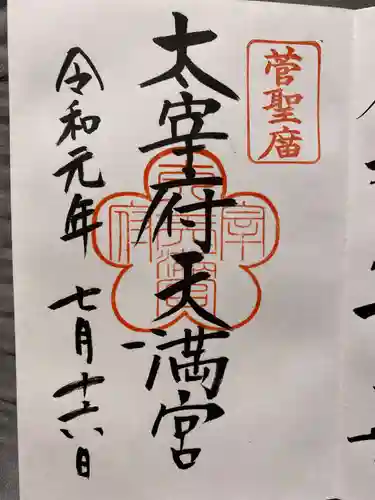 菅聖廟
太宰府天満宮
令和元年七月十六日